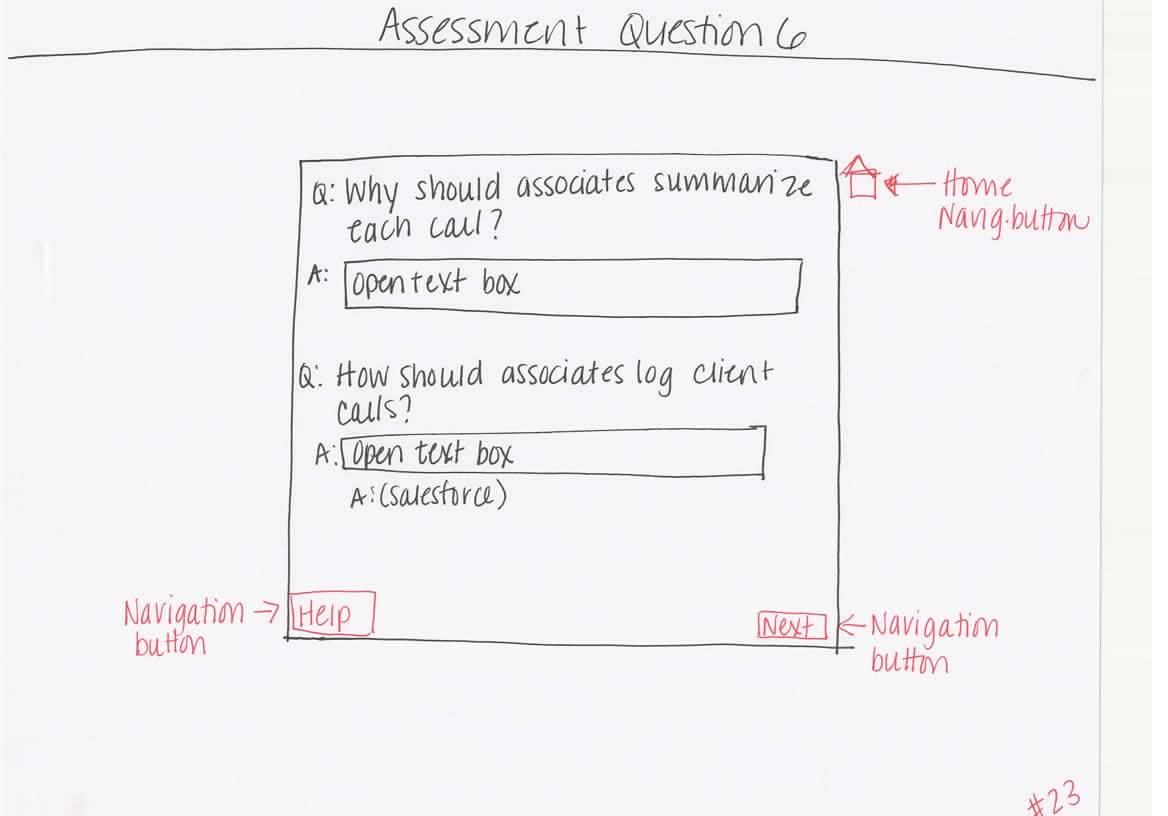 Assessment Question 6
Q: Why should associates summarize
each call?
Home
Navig.button
A: Open text box
Q: How should associates log client
calls?
A: Open text box
A: (Salesforce)
Navigation
button
Help
Next
Navigation
button
#23